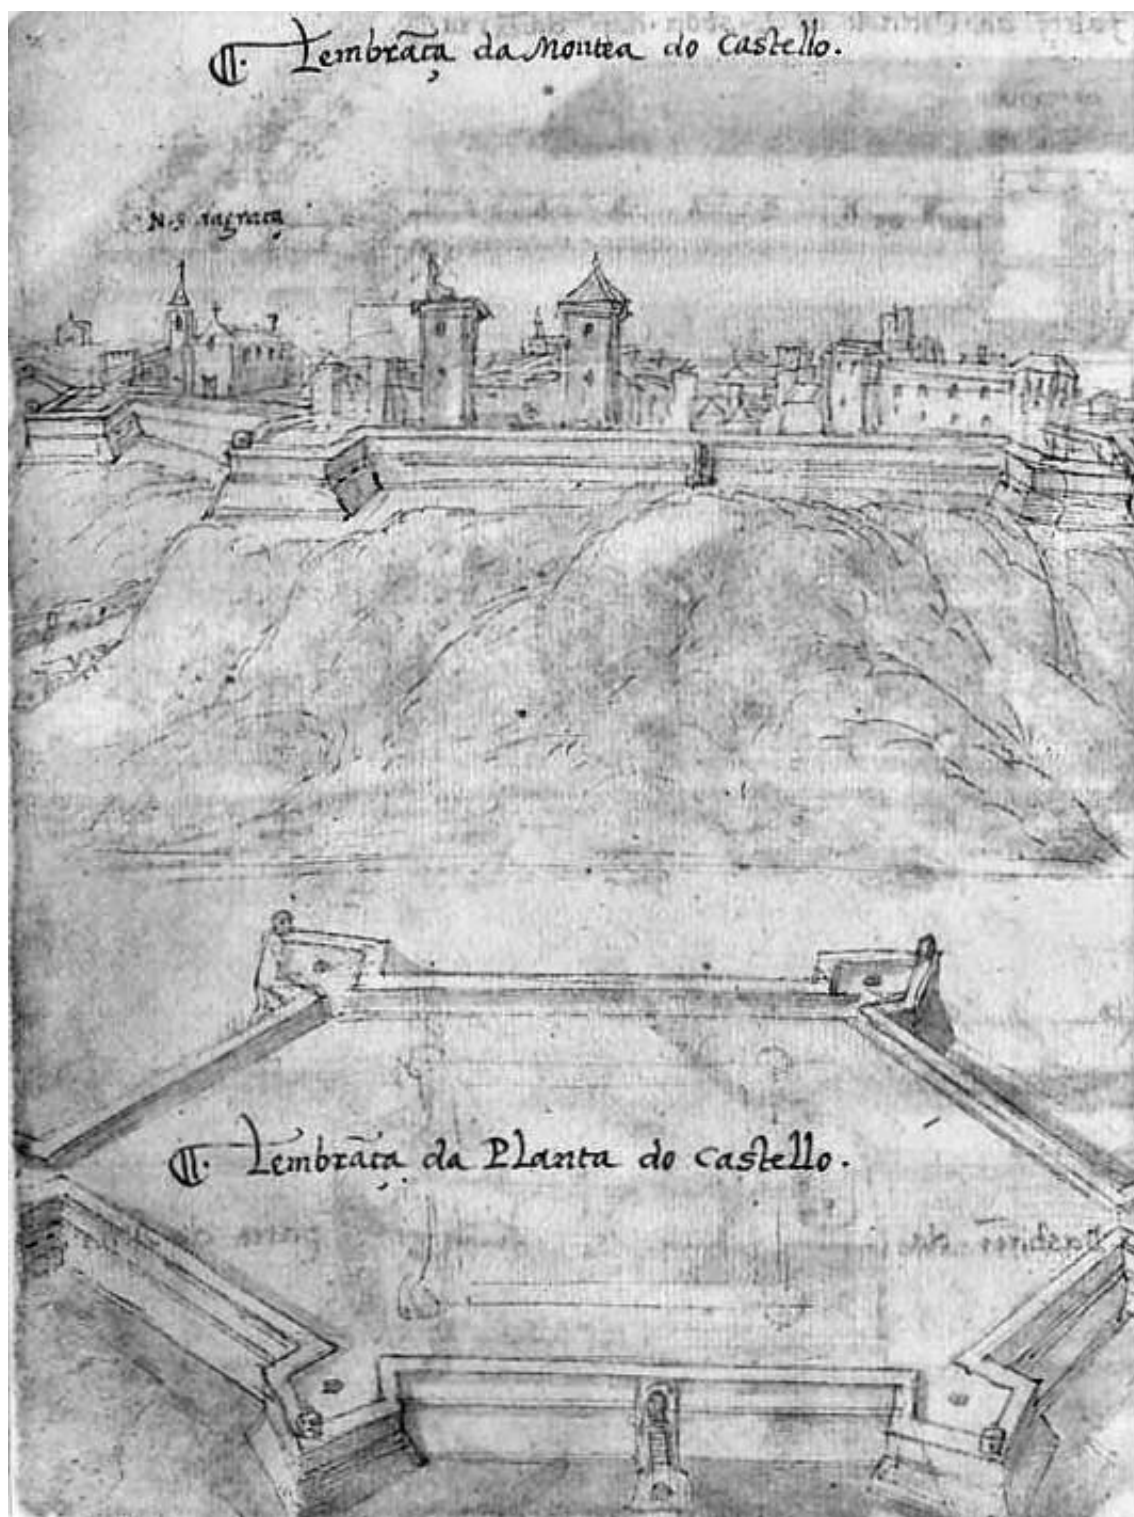 Lembrãça da Montea do Castello.
N.S. dagraça
Lembrãça da Planta do Castello.